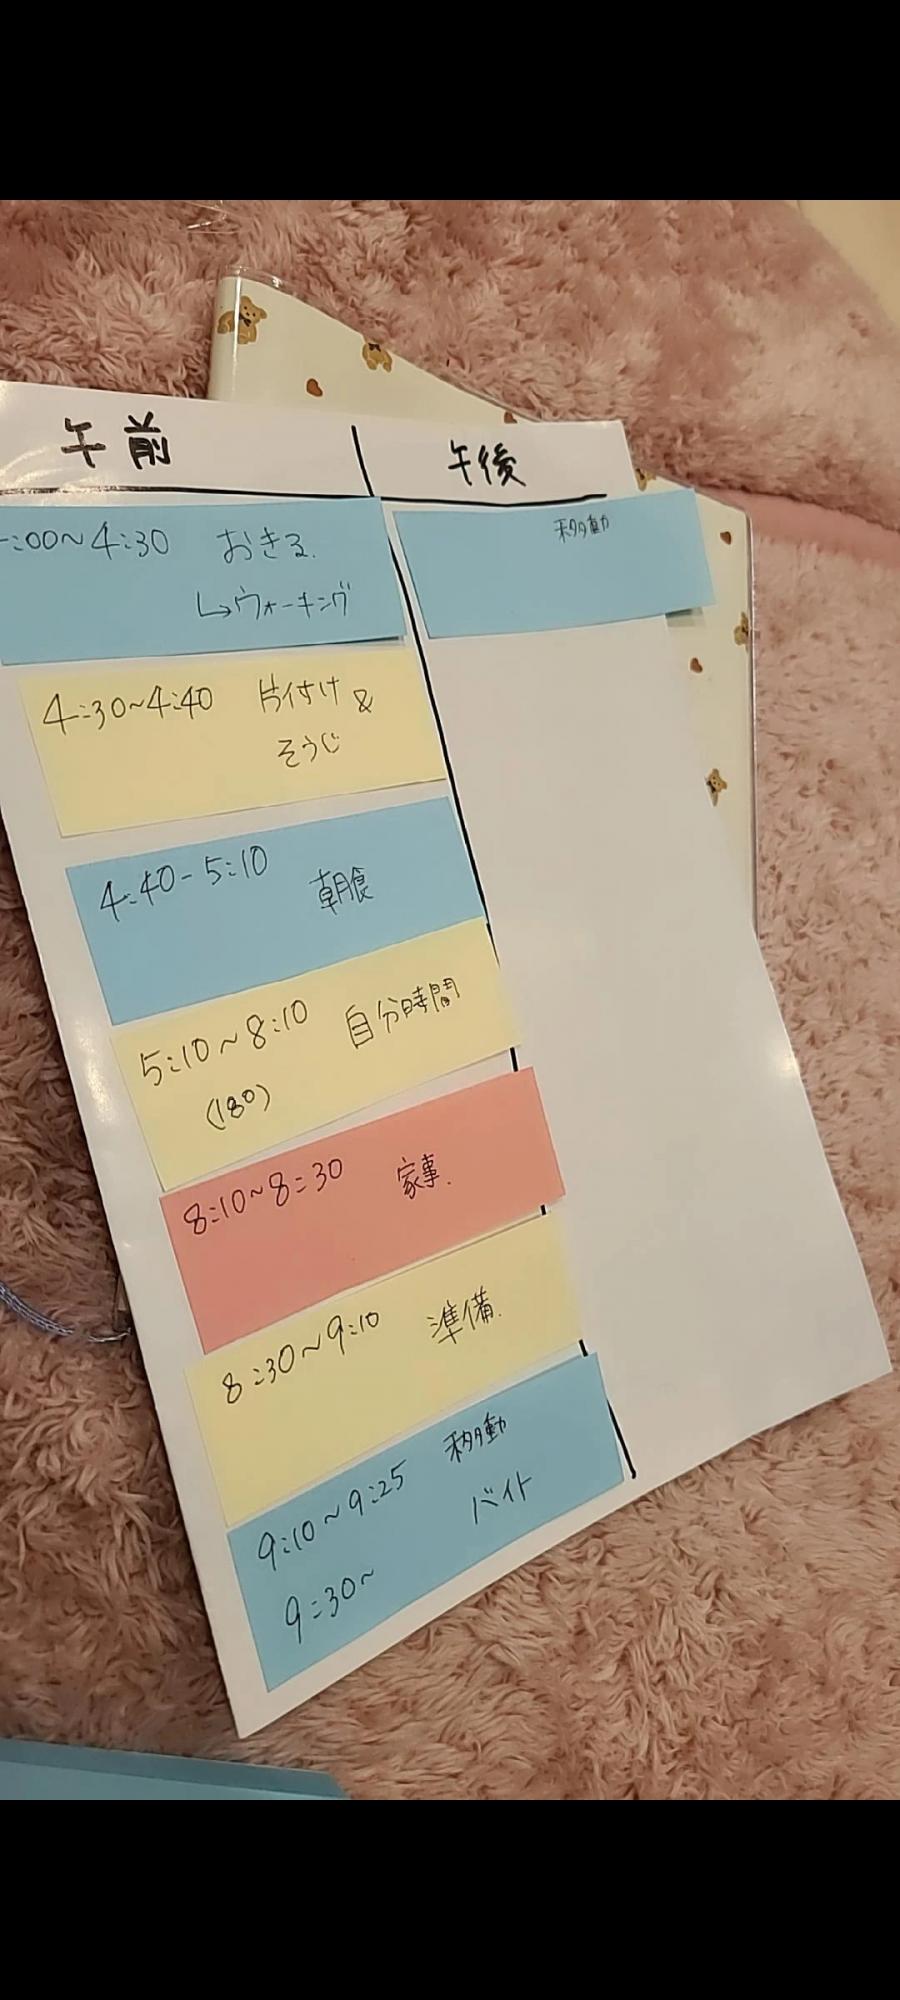 午前
午後
:00～4:30 おきる.
↳ウォーキング
4:30～4:40 片付け &
そうじ
4:40-5:10 朝食
5:10～8:10 自分時間
(180)
8:10～8:30 家事.
8:30～9:10 準備.
9:10～9:25 移動
バイト
9:30～
移動